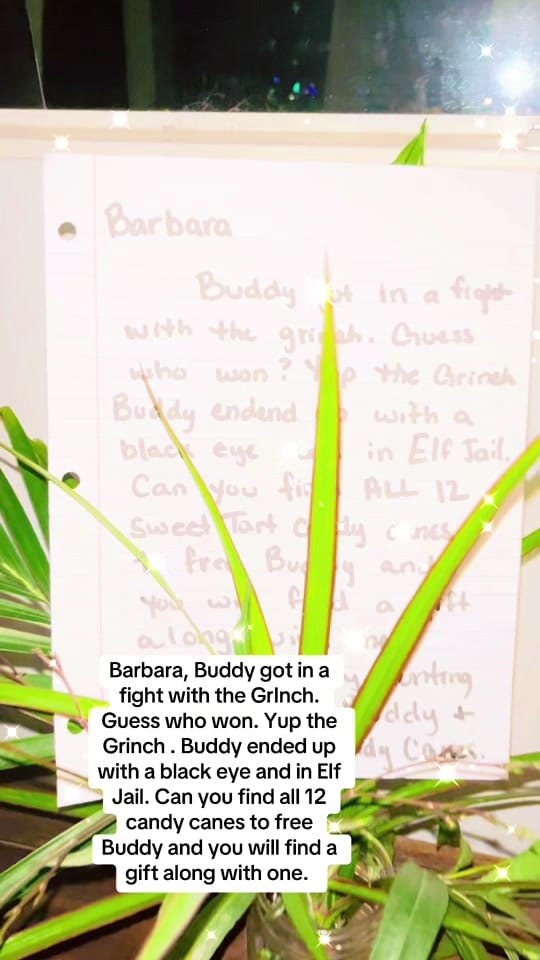 Barbara
Buddy got in a fight
with the grinch. Guess
who won? Yup the Grinch
Buddy endend up with a
black eye and in Elf Jail.
Can you find ALL 12
Sweet Tart candy canes
to free Buddy and
you will find a gift
along with one
Buddy +
Candy Canes.
Barbara, Buddy got in a
fight with the GrInch.
Guess who won. Yup the
Grinch . Buddy ended up
with a black eye and in Elf
Jail. Can you find all 12
candy canes to free
Buddy and you will find a
gift along with one.